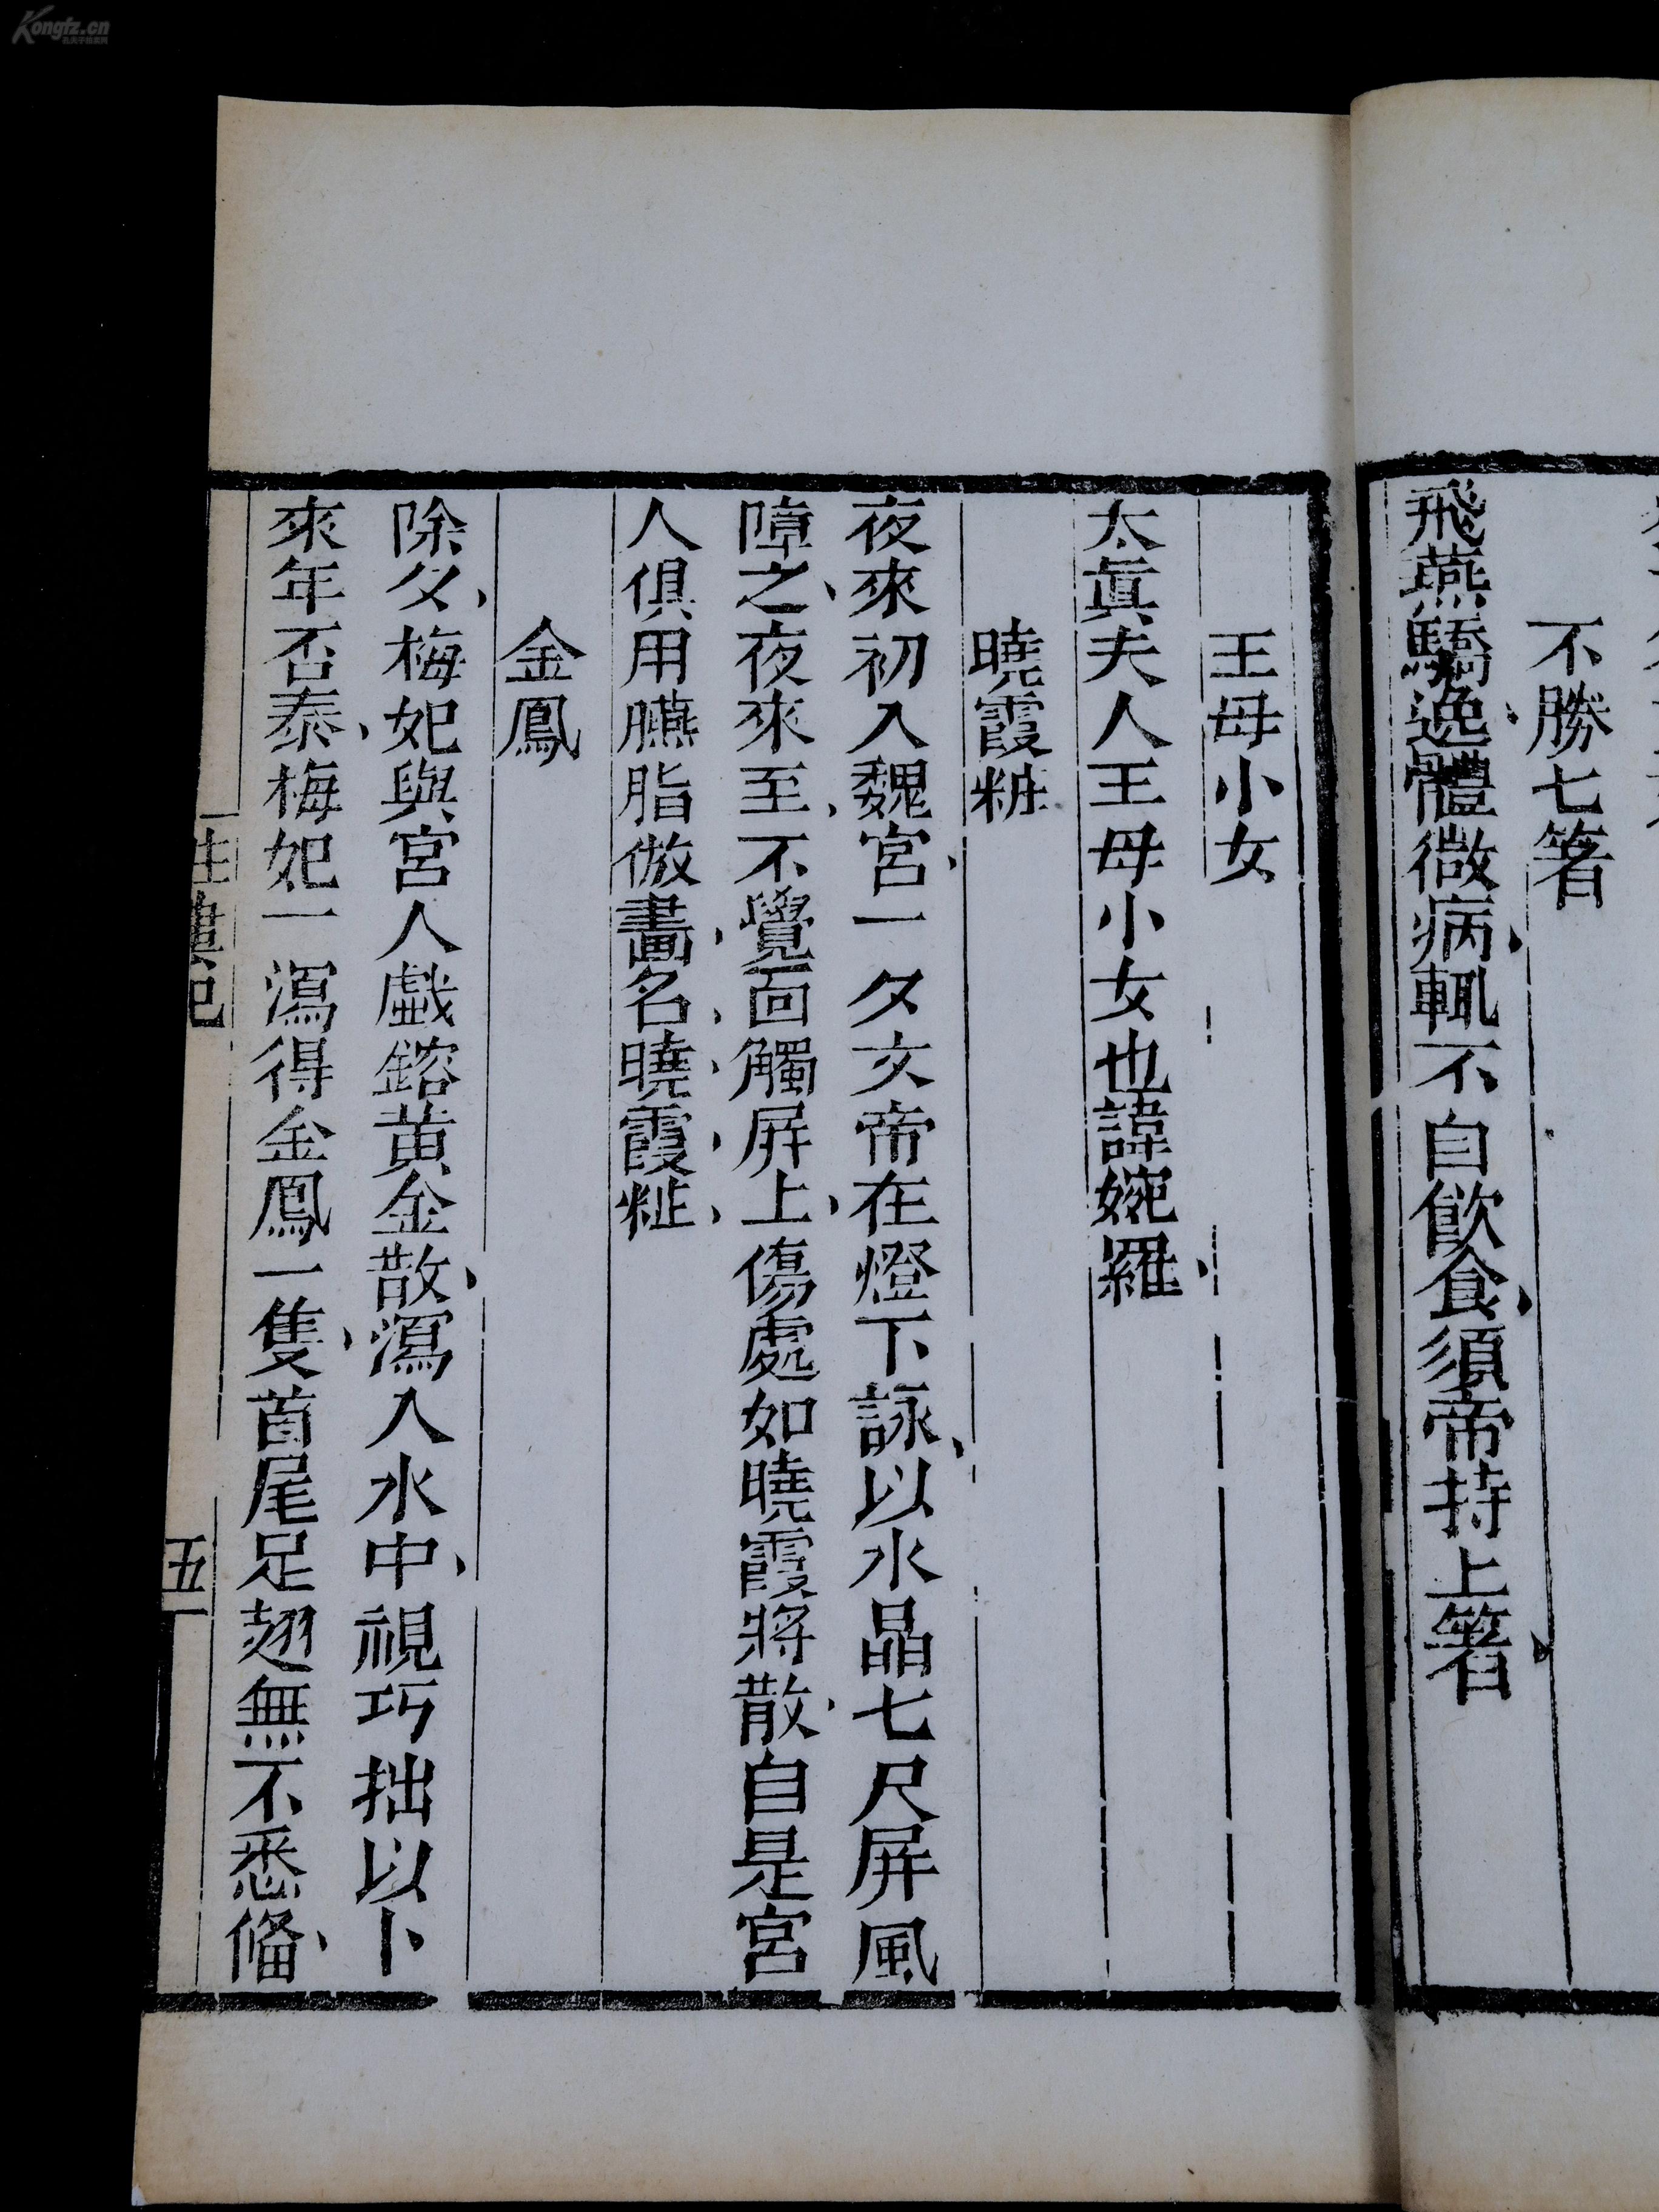 不勝七箸
飛燕驕逸體微病輒不自飲食須帝持上箸
王母小女
太眞夫人王母小女也諱婉羅
曉霞粧
夜來初入魏宮一夕文帝在燈下詠以水晶七尺屏風
障之夜來至不覺面觸屏上傷處如曉霞將散自是宮
人俱用臙脂倣畫名曉霞粧
金鳳
除夕梅妃與宮人戲鎔黄金散瀉入水中視巧拙以卜
來年否泰梅妃一瀉得金鳳一隻首尾足翅無不悉偹
五
Kongfz.cn